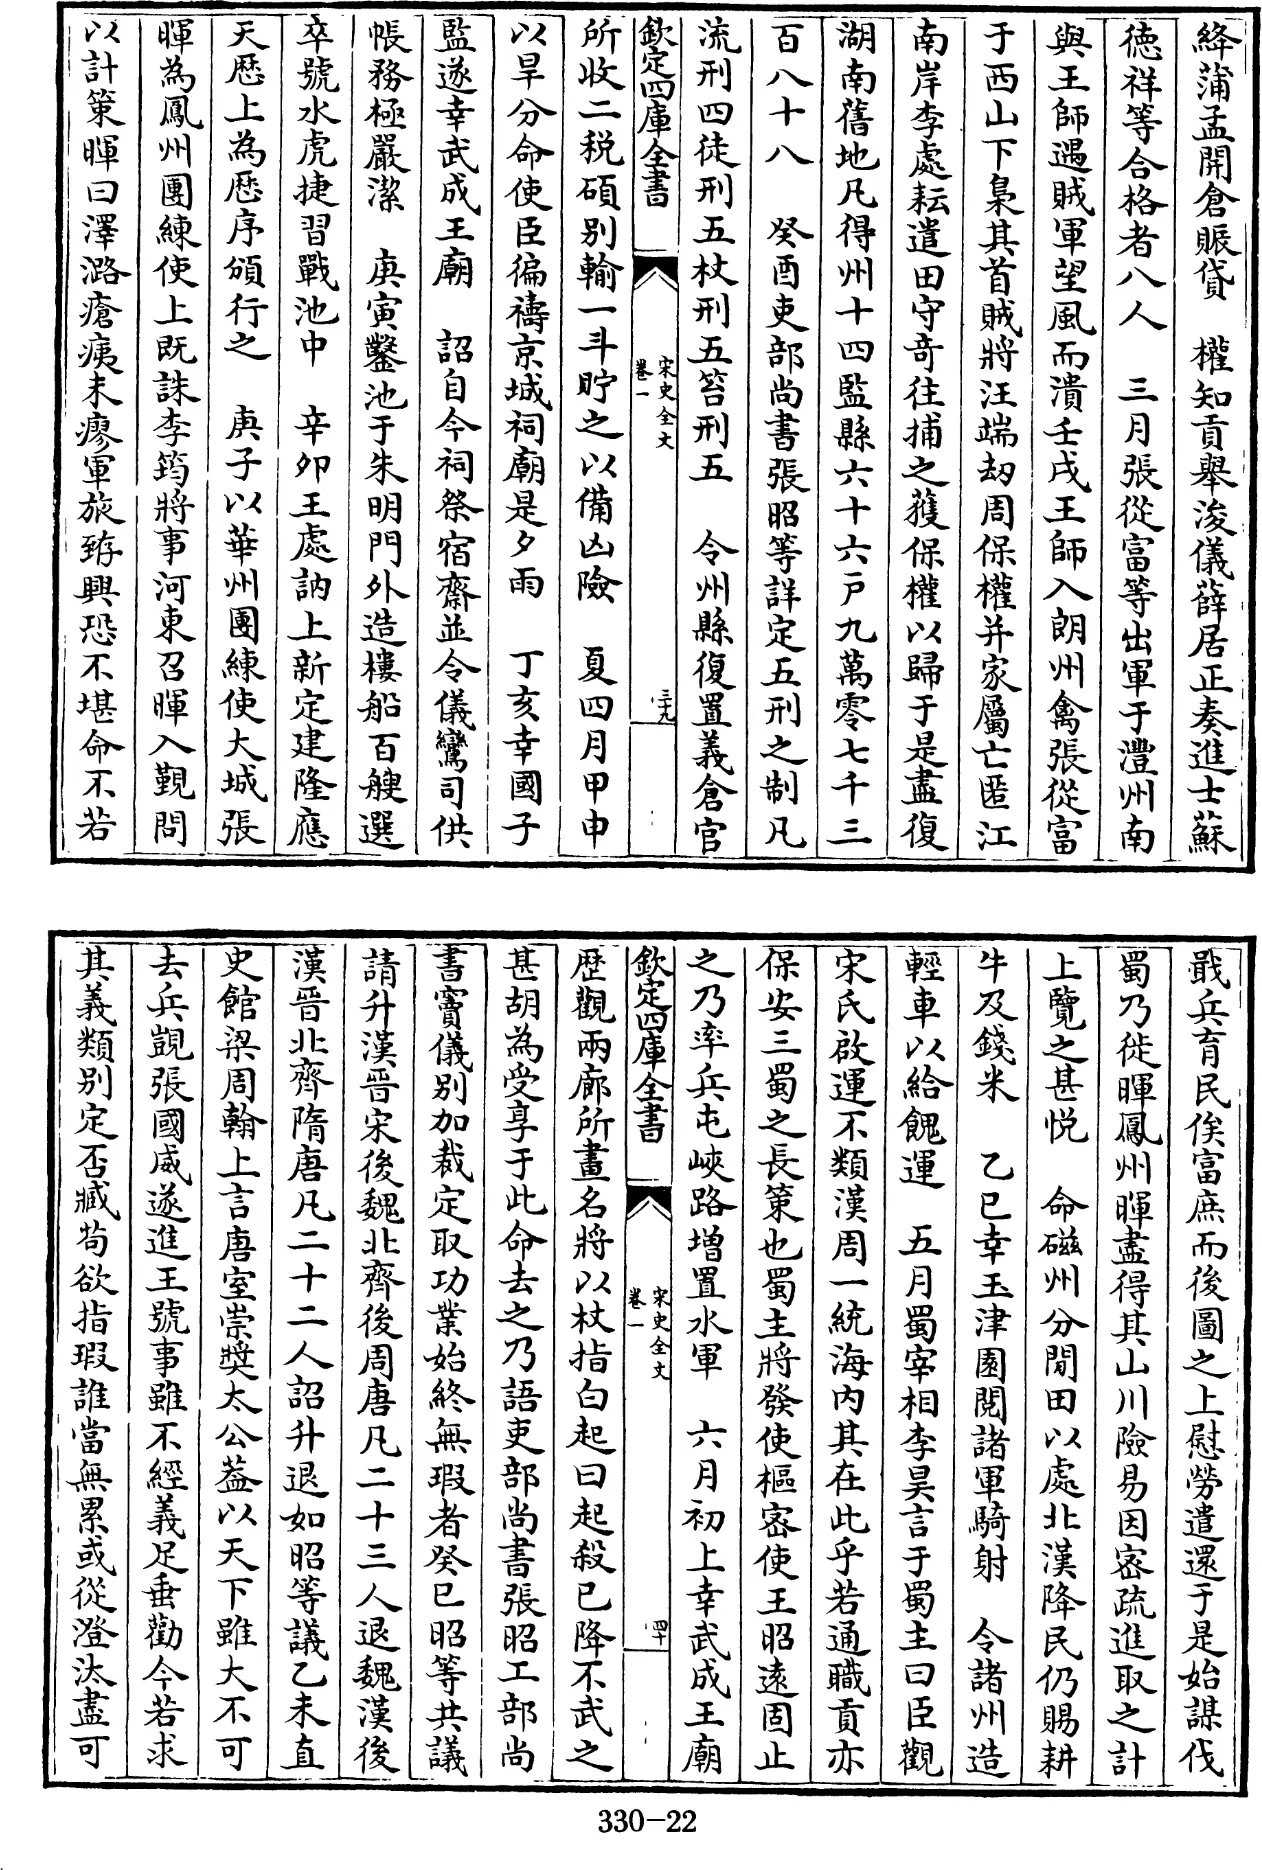 絳蒲孟開倉賑貸　權知貢舉浚儀薛居正奏進士蘇
徳祥等合格者八人　三月張從富等出軍于澧州南
與王師遇賊軍望風而潰壬戌王師入朗州禽張從富
于西山下梟其首賊將汪端刼周保權并家屬亡匿江
南岸李處耘遣田守竒往捕之獲保權以歸于是盡復
湖南舊地凡得州十四監縣六十六戸九萬零七千三
百八十八　癸酉吏部尚書張昭等詳定五刑之制凡
流刑四徒刑五杖刑五笞刑五　令州縣復置義倉官
欽定四庫全書
宋史全文
卷一
三十九
所收二税碩别輸一斗貯之以備凶險　夏四月甲申
以旱分命使臣徧禱京城祠廟是夕雨　丁亥幸國子
監遂幸武成王廟　詔自今祠祭宿齋並令儀鸞司供
帳務極嚴潔　庚寅鑿池于朱明門外造樓船百艘選
卒號水虎捷習戰池中　辛卯王處訥上新定建隆應
天厯上為厯序頒行之　庚子以華州團練使大城張
暉為鳳州團練使上既誅李筠將事河東召暉入覲問
以計策暉曰澤潞瘡痍未瘳軍旅荐興恐不堪命不若
戢兵育民俟富庶而後圖之上慰勞遣還于是始謀伐
蜀乃徙暉鳳州暉盡得其山川險易因密疏進取之計
上覽之甚悦　命磁州分閒田以處北漢降民仍賜耕
牛及錢米　乙巳幸玉津園閲諸軍騎射　令諸州造
輕車以給餽運　五月蜀宰相李昊言于蜀主曰臣觀
宋氏啟運不類漢周一統海内其在此乎若通職貢亦
保安三蜀之長策也蜀主將發使樞密使王昭逺固止
之乃率兵屯峽路增置水軍　六月初上幸武成王廟
欽定四庫全書
宋史全文
卷一
四十
歴觀兩廊所畫名將以杖指白起曰起殺已降不武之
甚胡為受享于此命去之乃語吏部尚書張昭工部尚
書竇儀别加裁定取功業始終無瑕者癸巳昭等共議
請升漢晉宋後魏北齊後周唐凡二十三人退魏漢後
漢晉北齊隋唐凡二十二人詔升退如昭等議乙未直
史館梁周翰上言唐室崇奬太公葢以天下雖大不可
去兵覬張國威遂進王號事雖不經義足垂勸今若求
其義類别定否臧茍欲指瑕誰當無累或從澄汰盡可
330-22